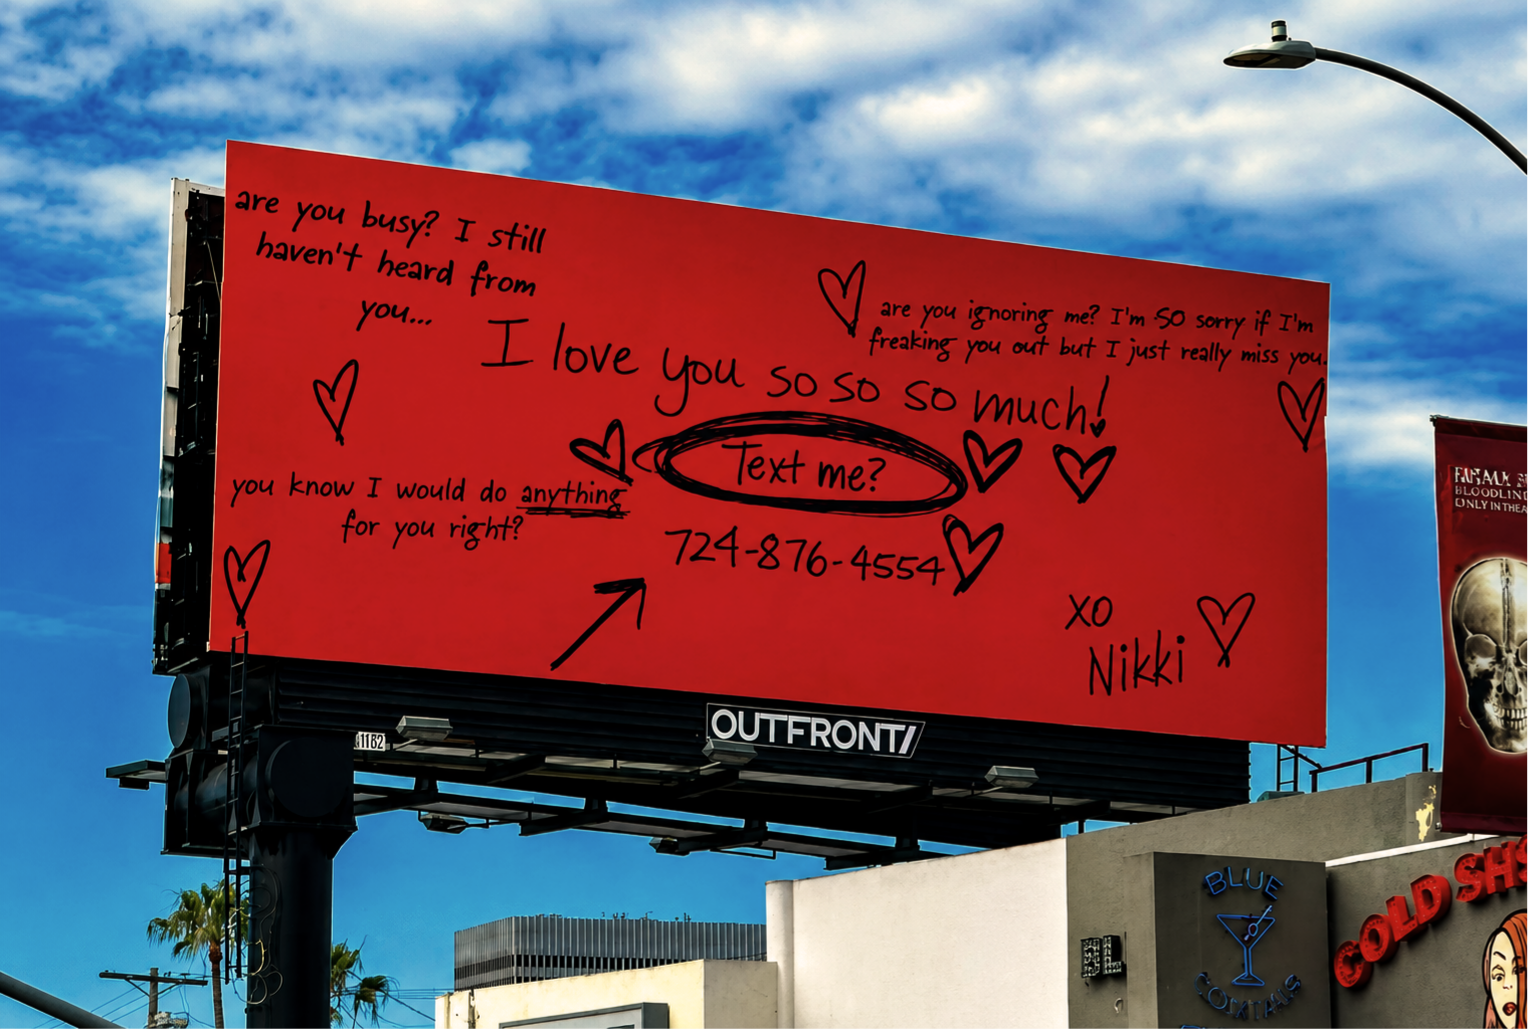 are you busy? I still
haven't heard from
you...
are you ignoring me? I'm SO sorry if I'm
freaking you out but I just really miss you.
I love you so so so much!
Text me?
you know I would do anything
for you right?
724-876-4554
xo
Nikki
OUTFRONT/
1182
BLOODLINES
ONLY IN THEA
BLUE
COCKTAILS
COLD SHS